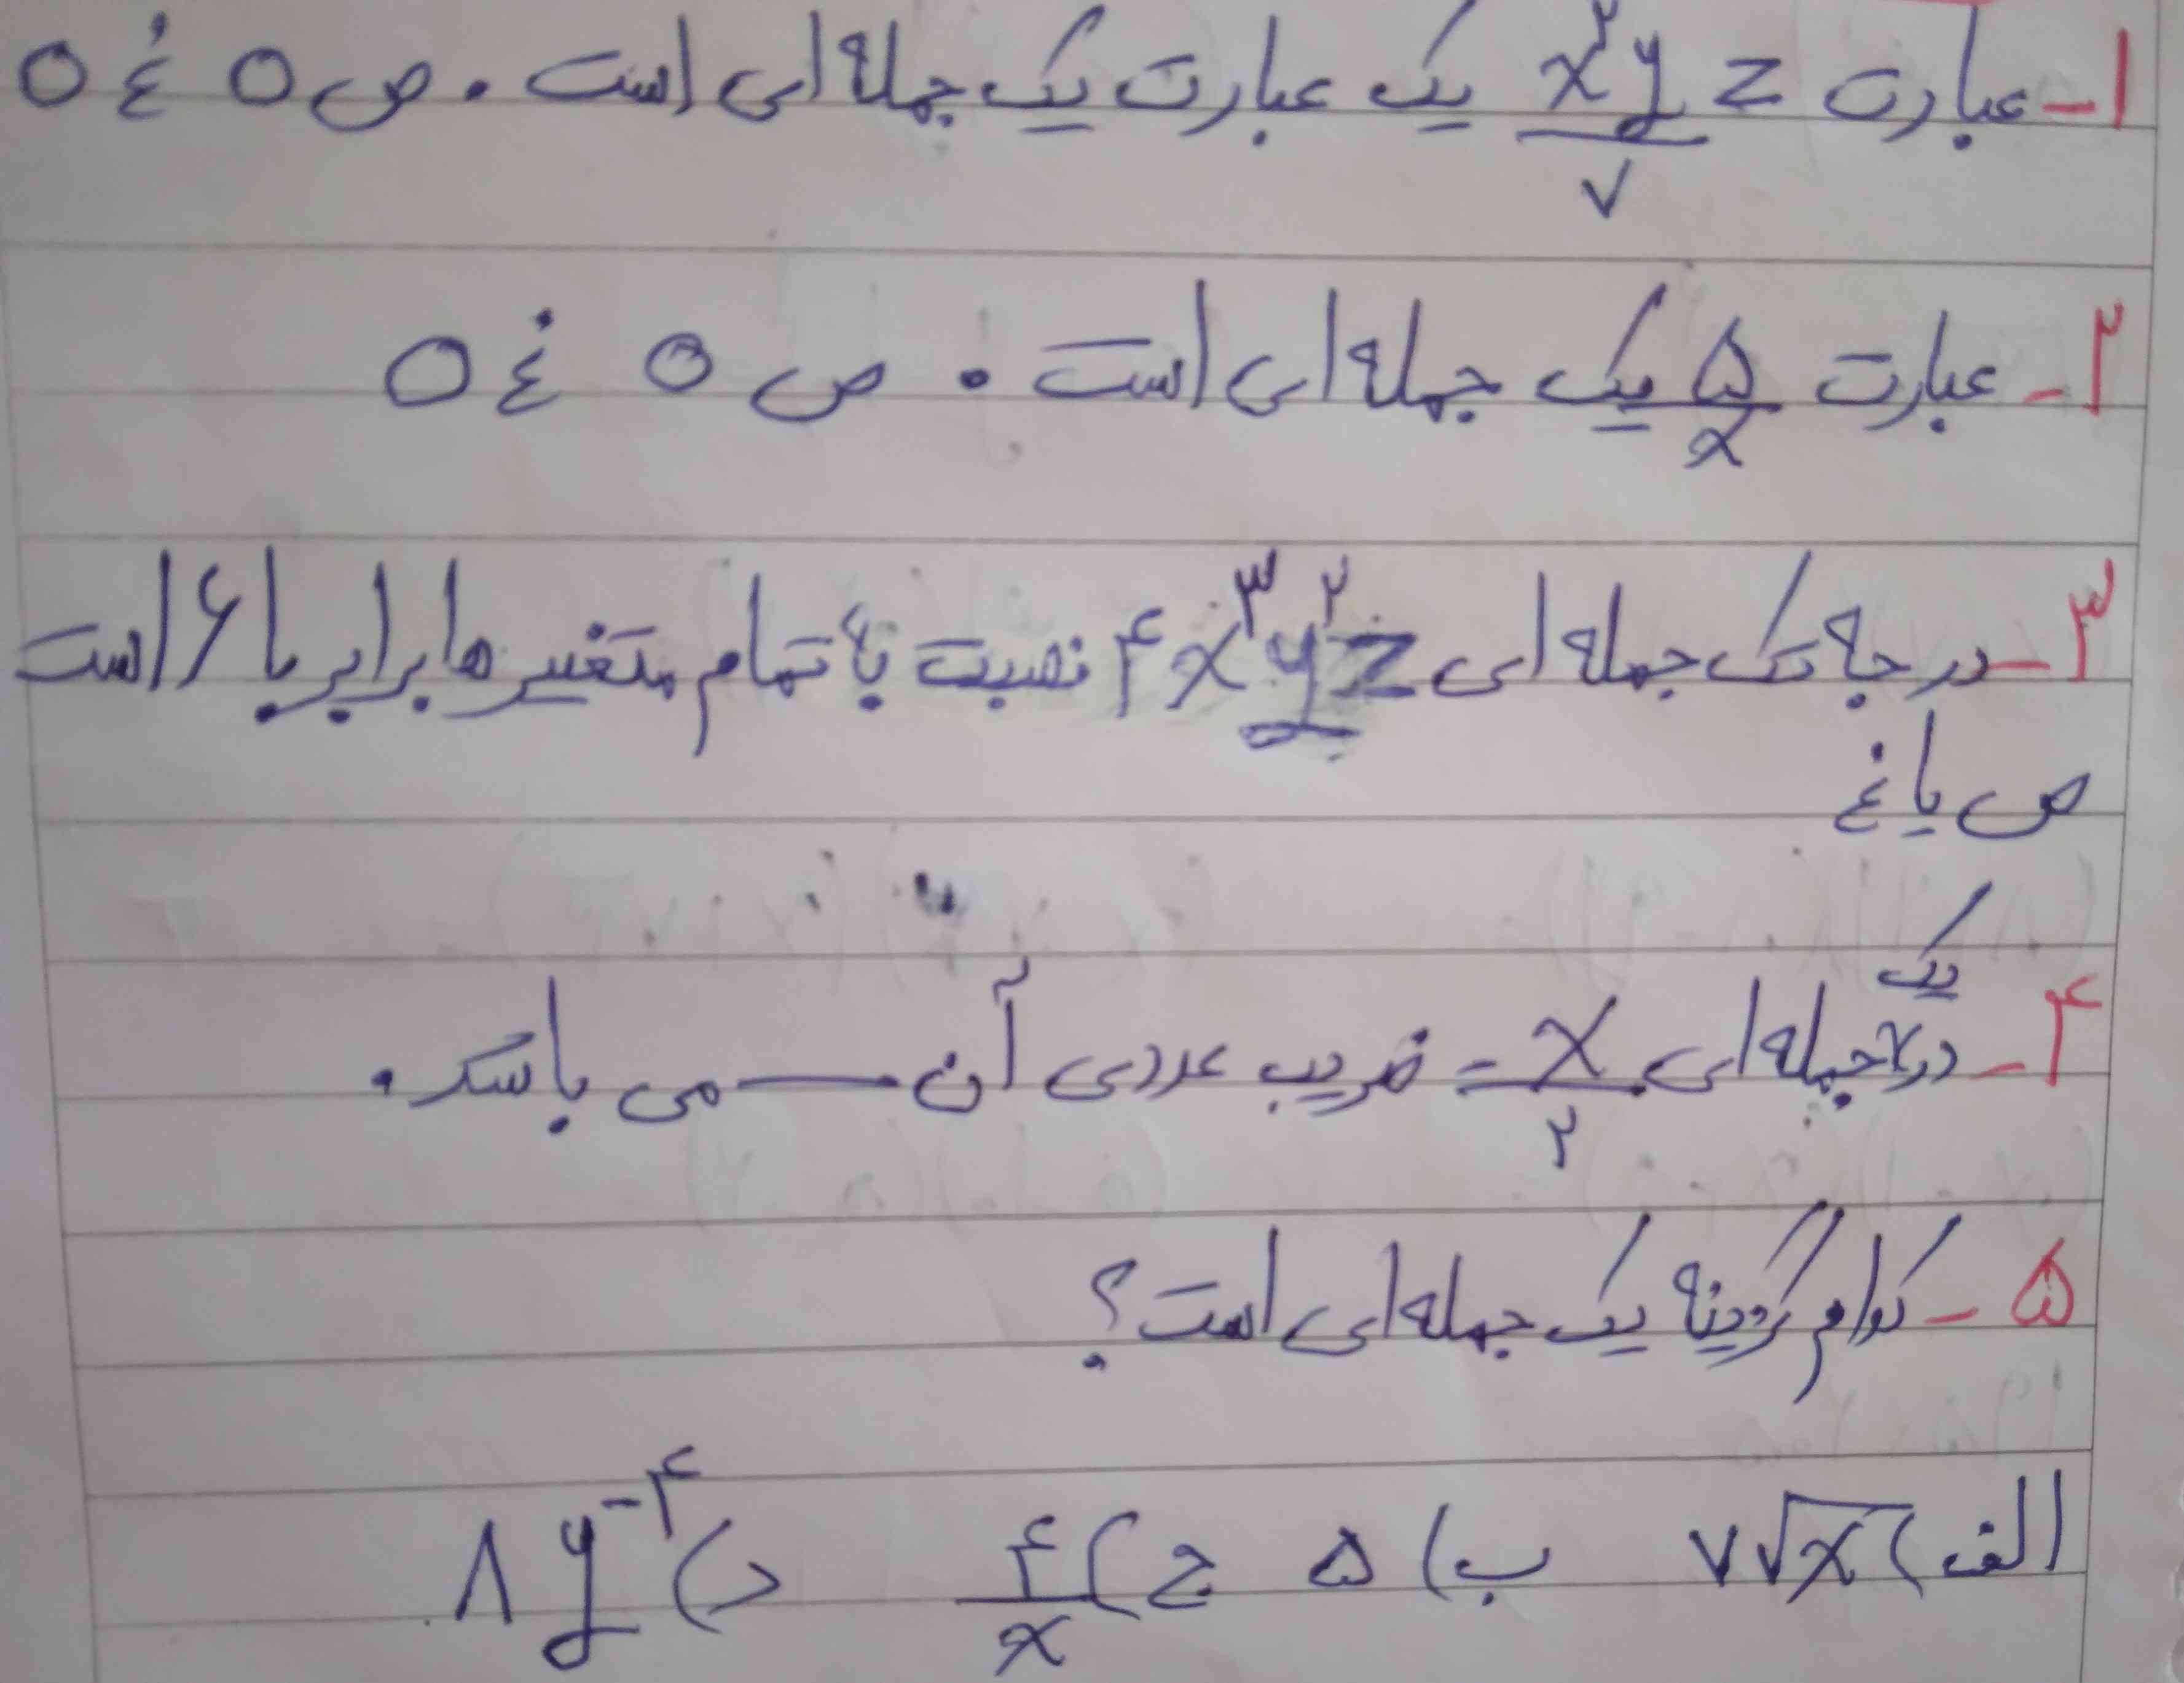 ۱- عبارت x²yz/۷ یک عبارت یک جمله ای است . ص○ غ○
۲- عبارت ۵/x یک جمله ای است . ص○ غ○
۳- درجه تک جمله ای ۴x³y²z نصبت به تمام متغییر ها برابر با ۶ است
ص یا غ
۴- در یک جمله ای -x/۲ ضریب عددی آن ــــ می باشد .
۵- کدام گزینه یک جمله ای است ؟
الف) ۷√x ب) ۵ ج) ۴/x د) ۸y⁻⁴